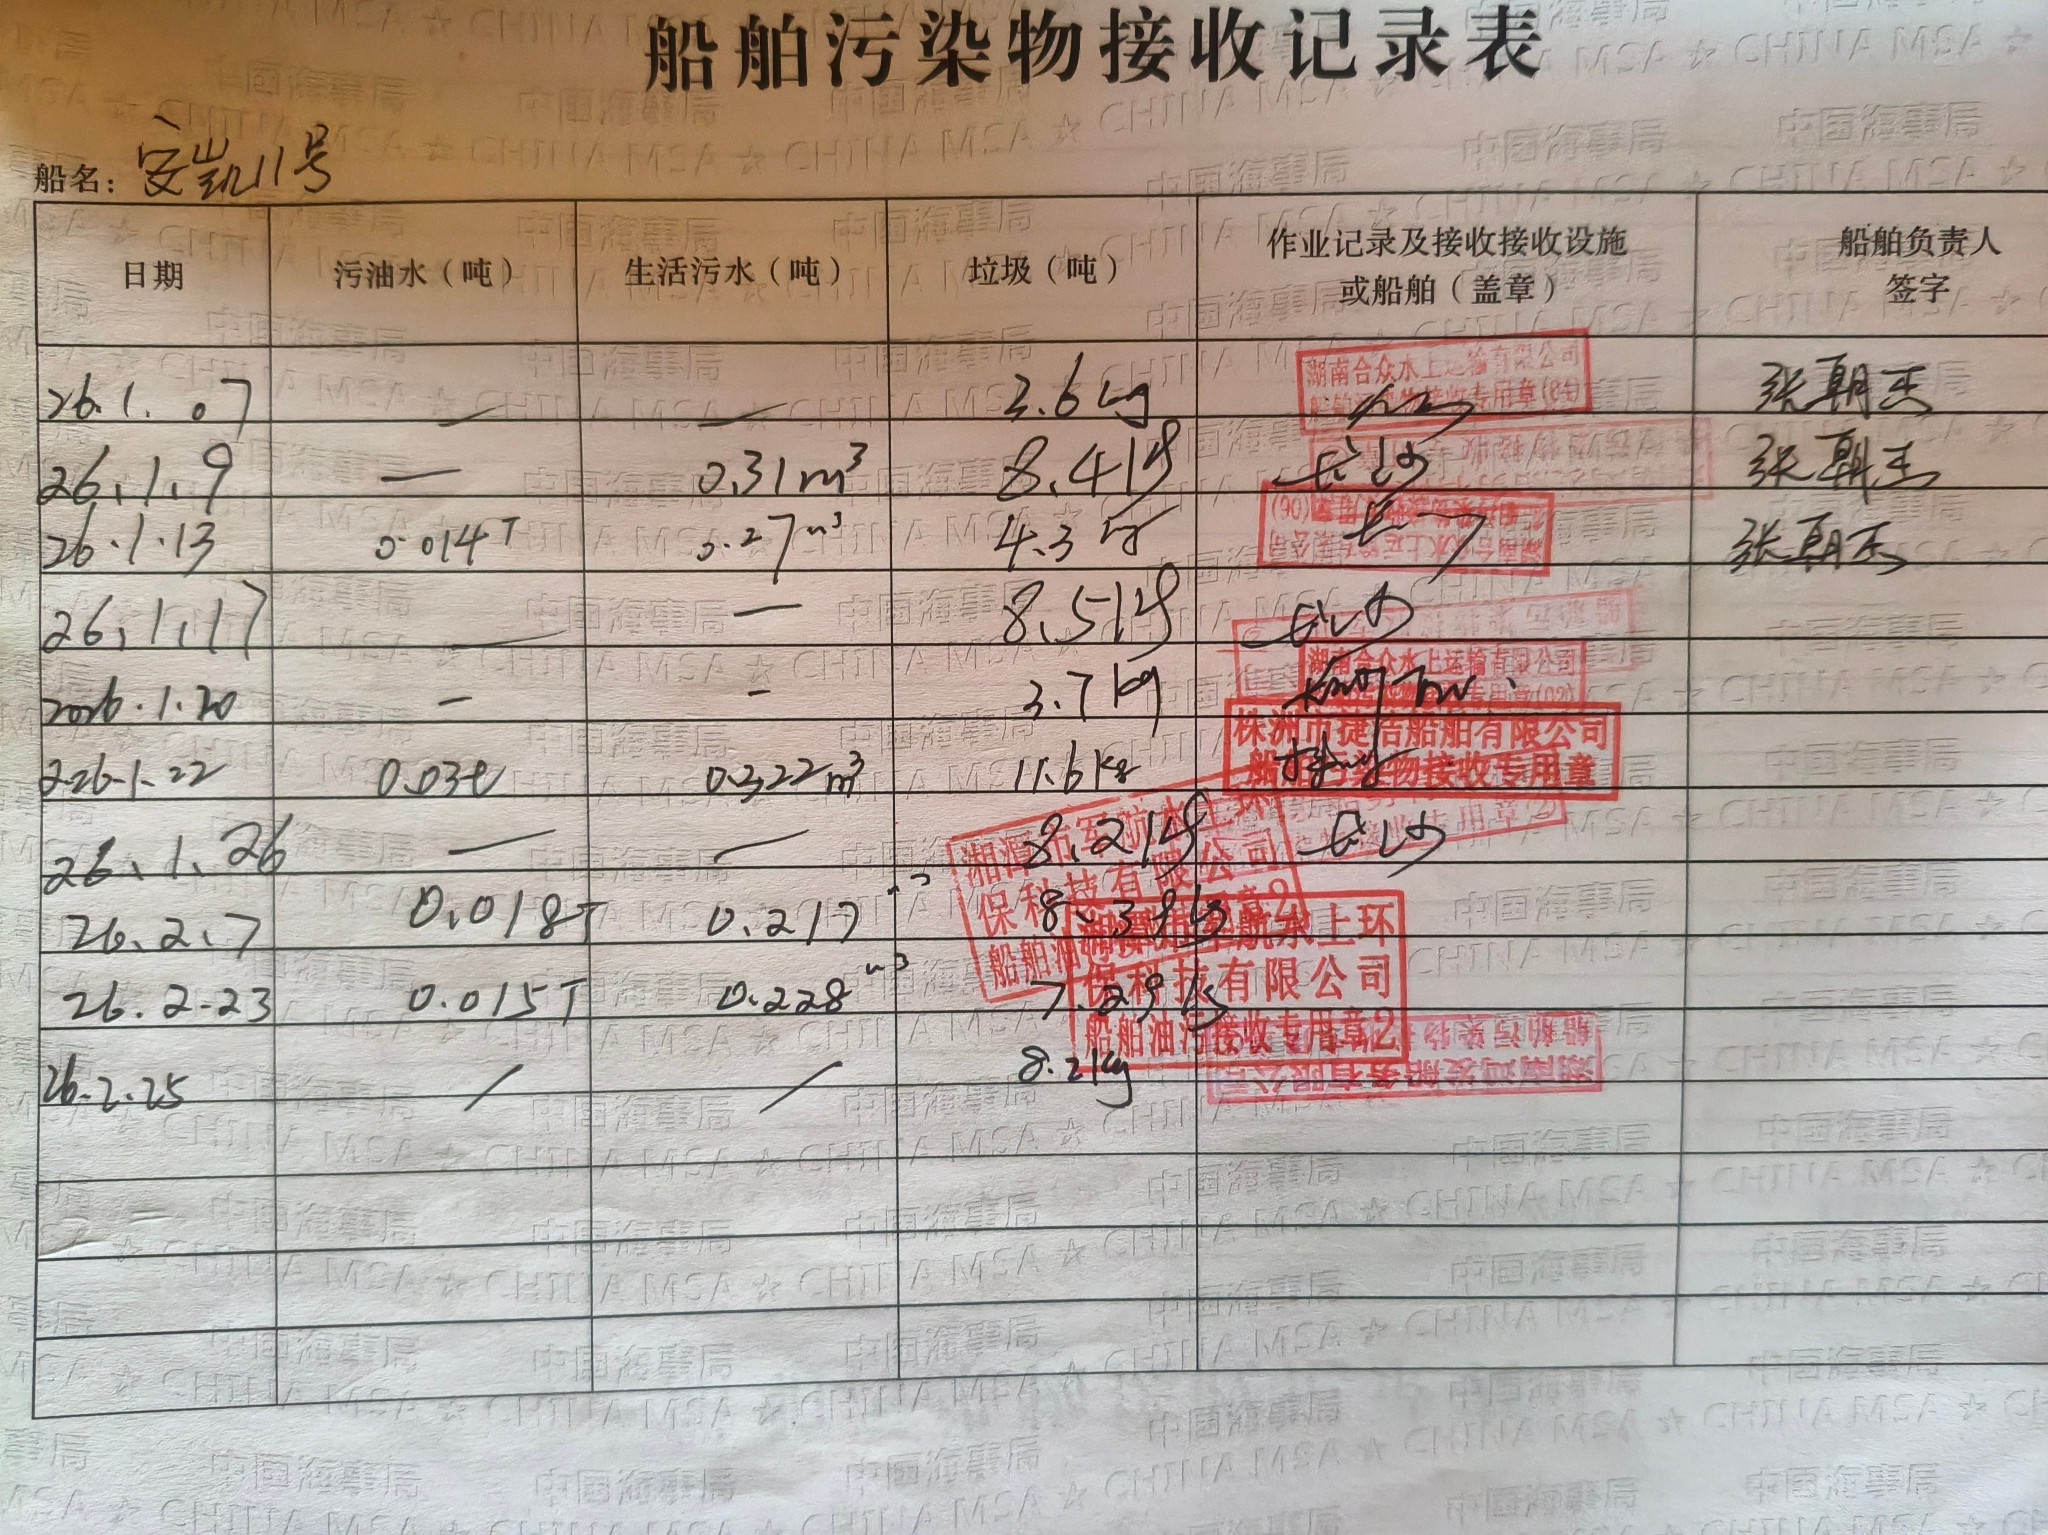 船舶污染物接收记录表
船名：安凯11号
日期 污油水（吨） 生活污水（吨） 垃圾（吨） 作业记录及接收接收设施或船舶（盖章） 船舶负责人签字
26.1.07 — — 3.6kg 湖南合众水上运输有限公司 张朝杰
26.1.9 — 0.31m³ 8.4kg 长沙 张朝杰
26.1.13 0.014T 0.27m³ 4.3kg 张朝杰
26.1.17 — — 8.5kg 长沙
2026.1.20 - - 3.7kg 湖南合众水上运输有限公司
226.1.22 0.03t 0.322m³ 11.6kg 株洲市捷洁船舶有限公司 船舶污染物接收专用章
26.1.26 — — 8.2kg 长沙
26.2.7 0.018T 0.217m³ 湘潭市军航水上环保科技有限公司
26.2.23 0.015T 0.228m³ 7.29kg 湘潭市军航水上环保科技有限公司 船舶油污接收专用章2
26.2.25 / / 8.2kg
中国海事局
CHINA MSA